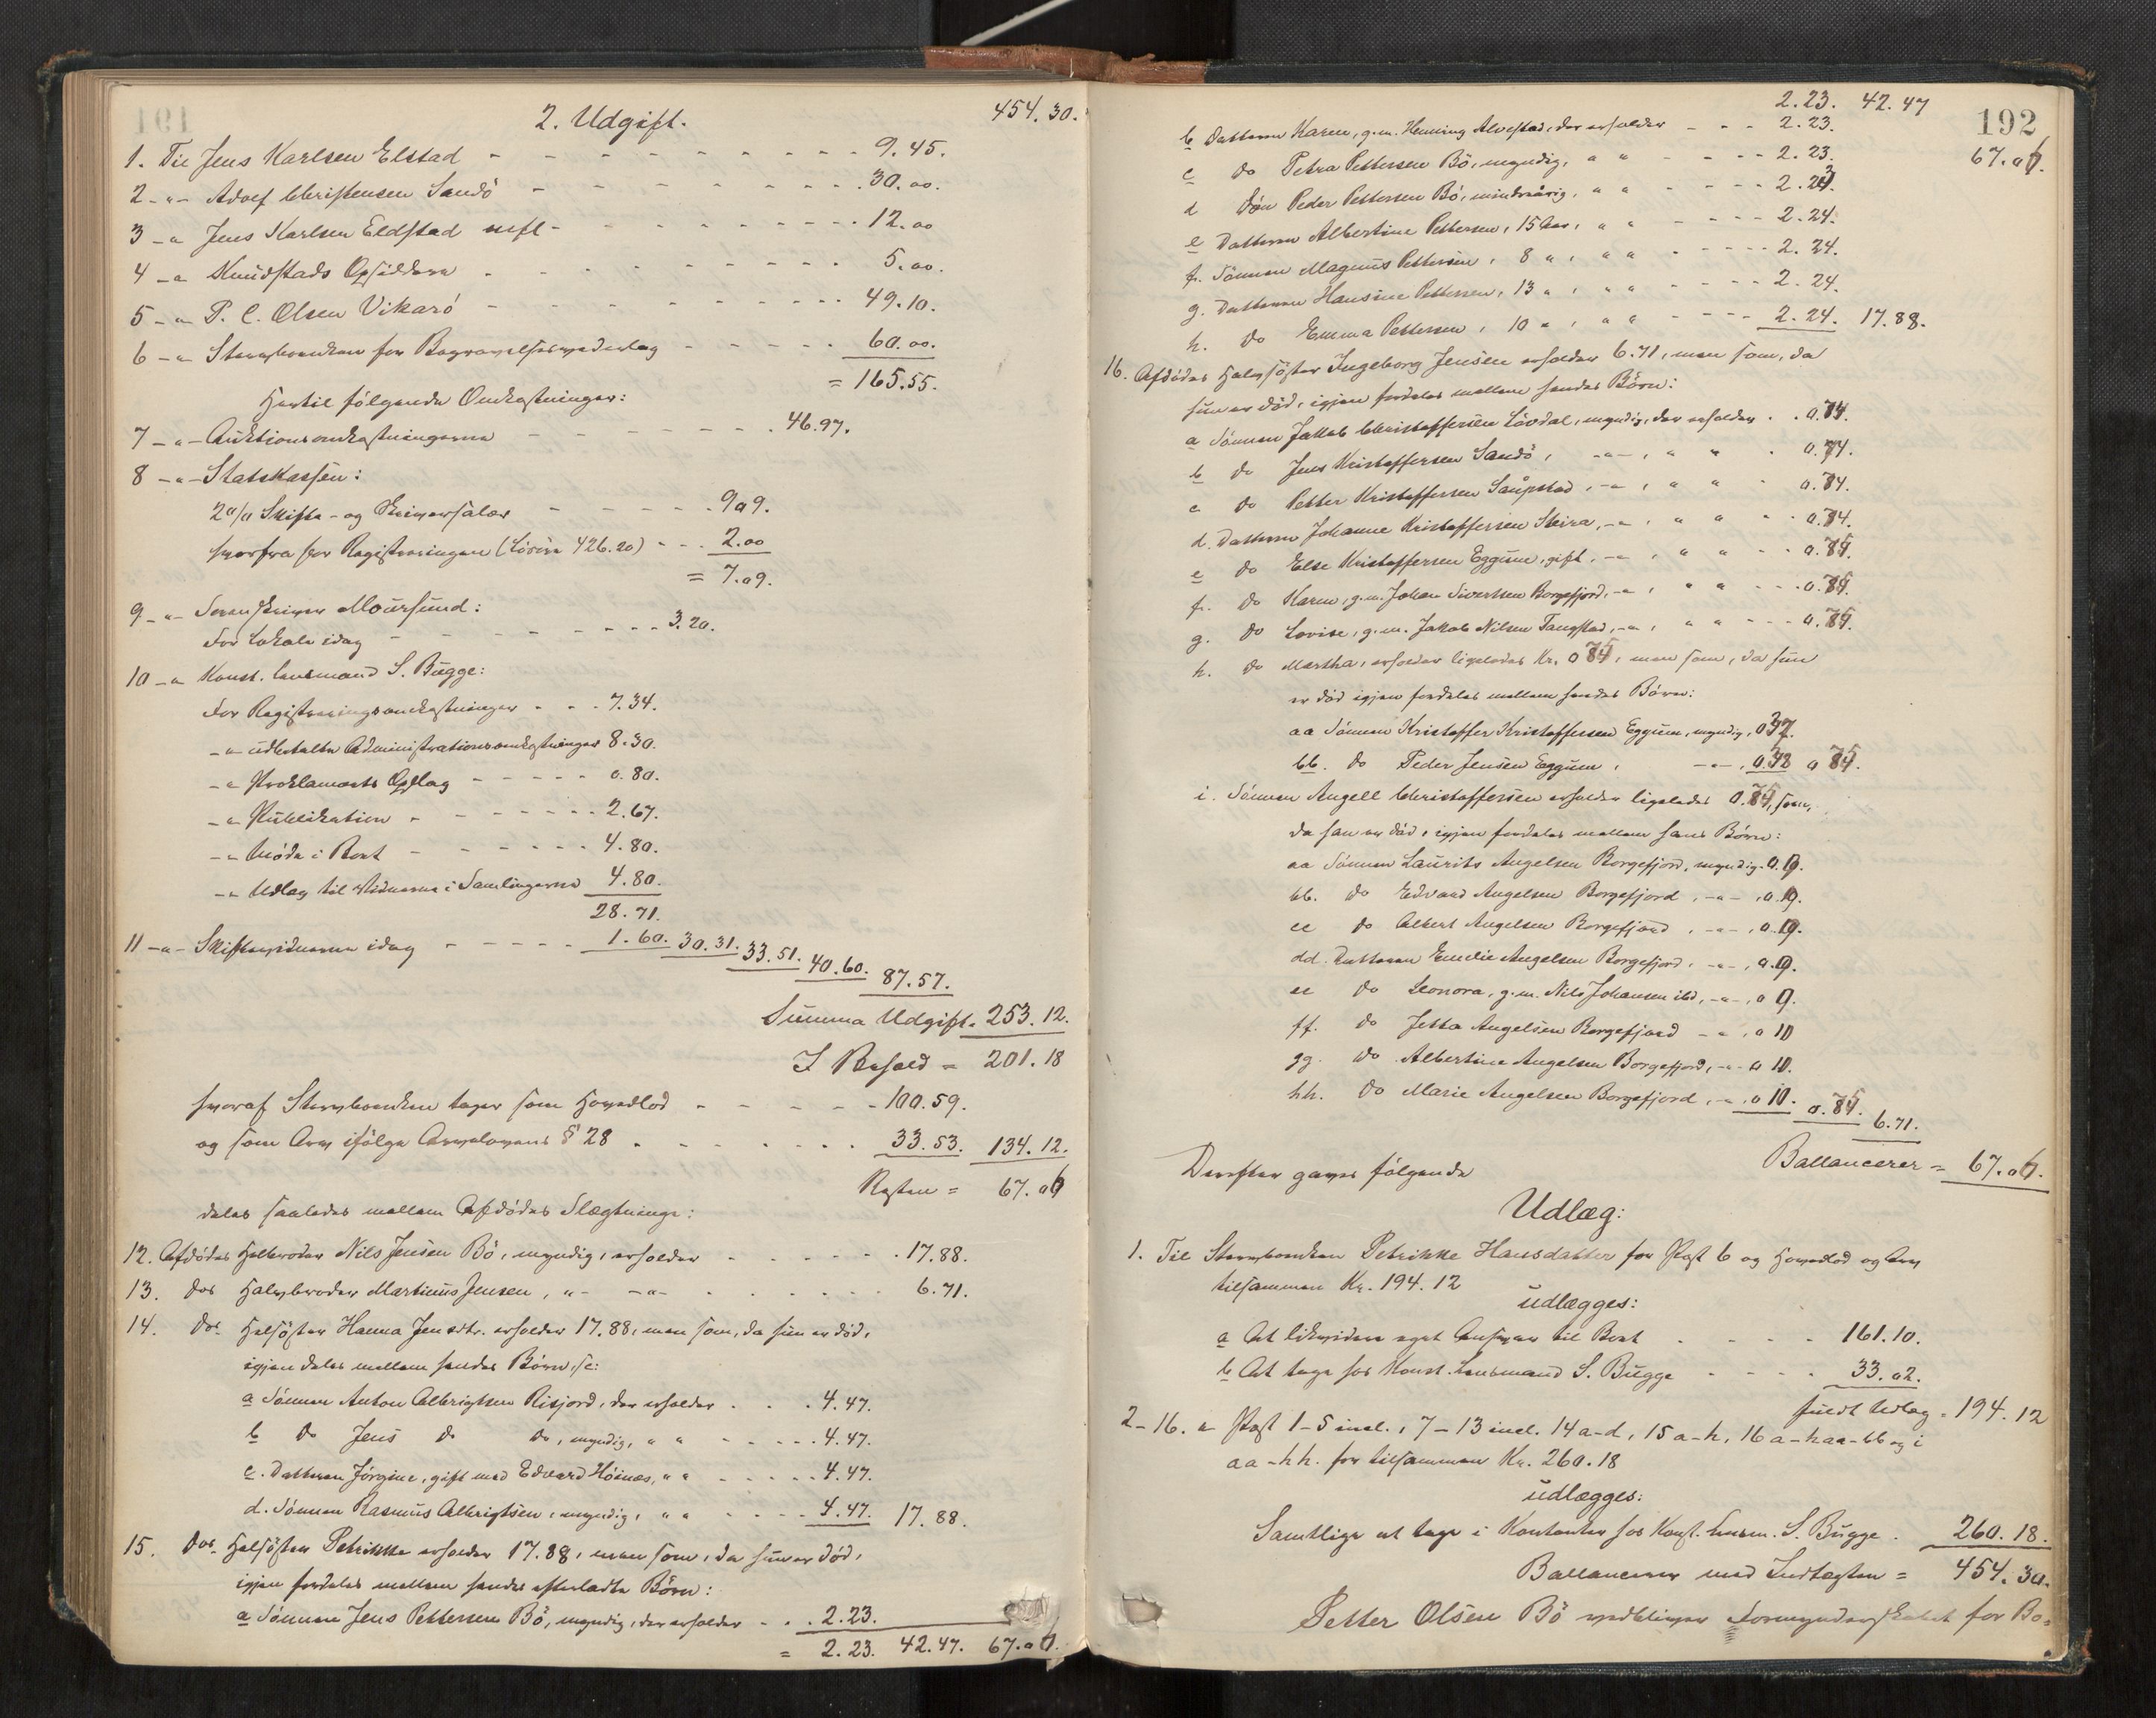 191
2. Udgift.
454.30.
1. Til Jens Karlsen Elstad - - - 9.45.
2 - " - Adolf Christensen Sandö - - - 30.00.
3 - " Jens Karlsen Eldstad - - - 12.00
4 - " Knudstads Opsiddere - - - 5.00.
5 - " P. C. Olsen Vikarö - - - 49.10.
6 - " Stervboenken for Begravelsesvederlag - - - 60.00.
= 165.55.
Hertil følgende Omkostninger:
7 - " - Auktionsomkostningerne - - - 46.97.
8 - " - Statskassen:
2 0/0 Skifte- og Skriversalær - - - 909.
hvorfra for Registreringen (Løsöre 426.20) - - - 2.00
= 7.09.
9 - " - Sorenskriver Moursund:
For Lokale idag - - - 3.20.
10 - " Konst. lensmand S. Bugge:
For Registreringsomkostninger - - - 7.34.
- " - udbetalte Administrationsomkostninger 8.30.
- " Proklamaets Opslag - - - 0.80.
- " Publikation - - - 2.67.
- " Møde i Boet - - - 4.80.
- " Udlæg til Vidnerne i Samlingerne 4.80.
28.71.
11 - " - Skiftevidnerne idag - - - 1.60. 30.31. 33.51. 40.60. 87.57.
Summa Udgift = 253.12.
I Behold = 201.18
hvoraf Stervboenken tager som Hovedlod - - - 100.59.
og som Arv ifølge Arvelovens § 28 - - - 33.53. 134.12.
Resten = 67.06
deles saaledes mellem Afdödes Slægtninge:
12. Afdödes Helbroder Nils Jensen Bö, myndig, erholder - - - 17.88.
13. Dos Halvbroder Martinus Jensen, " - " - - - 6.71.
14. Dos Helsöster Hanna Jensdtr. erholder 17.88, men som, da hun er död,
igjen deles mellem hendes Børn, sc:
a Sönnen Anton Albrigtsen Risjord, der erholder - - - 4.47.
b Do Jens Do Do, myndig, " " - - - 4.47.
c. Datteren Jörgine, gift med Edvard Höines, " " - - - 4.47.
d. Sönnen Rasmus Albrigtsen, myndig, " " - - - 4.47. 17.88.
15. Dos Helsöster Petrikke erholder 17.88, men som, da hun er död,
igjen fordeles mellem hendes efterladte Börn:
a Sönnen Jens Pettersen Bö, myndig, der erholder - - 2.23.
= 2.23. 42.47. 67.06.
192
2.23. 42.47 67.06.
b Datteren Karen, g.m. Henning Alvestad, der erholder - - - 2.23.
c do Petra Pettersen Bö, myndig, " " - - - 2.23.
d Sön Peder Pettersen Bö, mindreårig, " " - - - 2.23.
e Datteren Albertine Pettersen, 15 Aar, " " - - - 2.24.
f. Sönnen Magnus Pettersen, 8 " , " " - - - 2.24.
g. Datteren Hansine Pettersen, 13 " , " " - - - 2.24.
h. do Emma Pettersen, 10 " , " " - - - 2.24. 17.88.
16. Afdödes Halvsöster Ingeborg Jensen erholder 6.71, men som, da
hun er död, igjen fordeles mellem hendes Börn:
a Sönnen Jakob Christoffersen Lövdal, myndig, der erholder . . 0.74.
b do Jens Kristoffersen Sandö, - " - , " " . 0.74.
c do Petter Kristoffersen Saupstad, - " , " " - 0.74.
d. Datteren Johanne Kristoffersen Steira, - " , " " - - 0.74.
e do Else Kristoffersen Eggum, gift, - " , " " - - 0.75.
f. do Karen, g.m. Johan Sivertsen Borgefjord, - " , " " - - - 0.75.
g. do Lovise, g.m. Jakob Nilsen Tangstad, - " , " " - - - 0.75.
h. do Martha, erholder ligeledes Kr. 0 75, men som, da hun
er död igjen fordeles mellem hendes Börn:
aa Sönnen Kristoffer Kristoffersen Eggum, myndig, 0 37.
bb. do Peder Jensen Eggum, - " - , 0 38 0 75.
i. Sönnen Angell Christoffersen erholder ligeledes 0.75, som,
da han er död, igjen fordeles mellem hans Börn:
aa Sönnen Laurits Angelsen Borgefjord, myndig. 0.9.
bb. do Edvard Angelsen Borgefjord, - " - , 0.9.
cc do Albert Angelsen Borgefjord, - " - , 0.9.
dd. Datteren Emelie Angelsen Borgefjord, - " - , 0.9.
ee do Leonora, g.m. Nils Johansen ibd, - " - , 0 9.
ff. do Jetta Angelsen Borgefjord - " , 0 10
gg. do Albertine Angelsen Borgefjord, - " - 0 10.
hh. do Marie Angelsen Borgefjord, - " , 0 10. 0.75. 6.71.
Ballancerer = 67.06.
Derefter gaves følgende
Udlæg:
1. Til Stervboenken Petrikke Hansdatter for Post 6 og Hovedlod og Arv
tilsammen Kr. 194.12
udlægges:
a At likvidere eget Ansvar til Boet - - - 161.10.
b At tage hos Konst. Lensmand S. Bugge - - - 33.02.
fuldt Udlæg = 194.12
2-16. " Post 1-5 incl., 7-13 incl. 14 a-d, 15 a-h, 16 a-h aa-bb og i
aa-hh. for tilsammen Kr. 260.18
udlægges:
Samtlige at tage i Kontanter hos Konst. Lensm. S. Bugge . 260.18.
Ballancerer med Indtægten = 454.30.
Petter Olsen Bö vedbliver Formynderskabet for Bo=